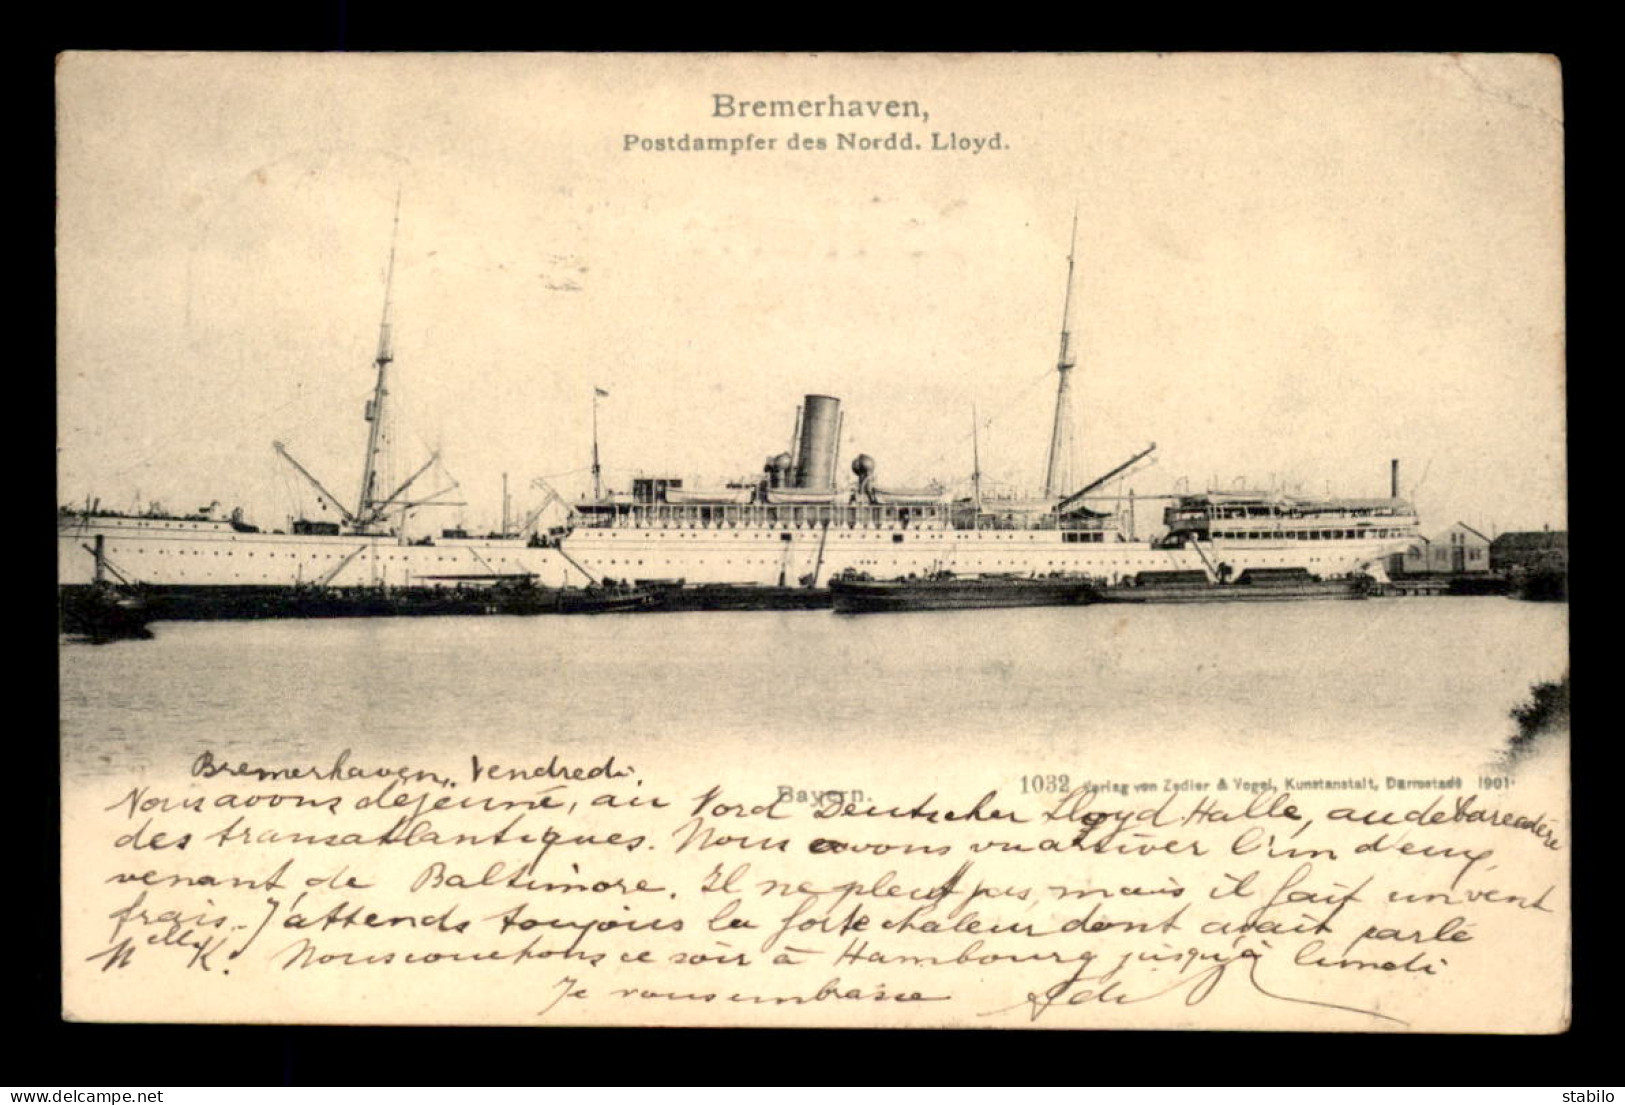 Bremerhaven,
Postdampfer des Nordd. Lloyd.
Bayern.
1032 Verlag von Zedler & Vogel, Kunstanstalt, Darmstadt 1901
Bremerhaven, Vendredi.
Nous avons déjeuné, au Nord Deutscher Lloyd Halle, au débarcadère
des transatlantiques. Nous avons vu arriver l'un d'eux,
venant de Baltimore. Il ne pleut pas, mais il fait un vent
frais. J'attends toujours la forte chaleur dont avait parlé
Melle K. Nous couchons ce soir à Hambourg jusqu'à lundi
Je vous embrasse
www.delcampe.net
stabilo